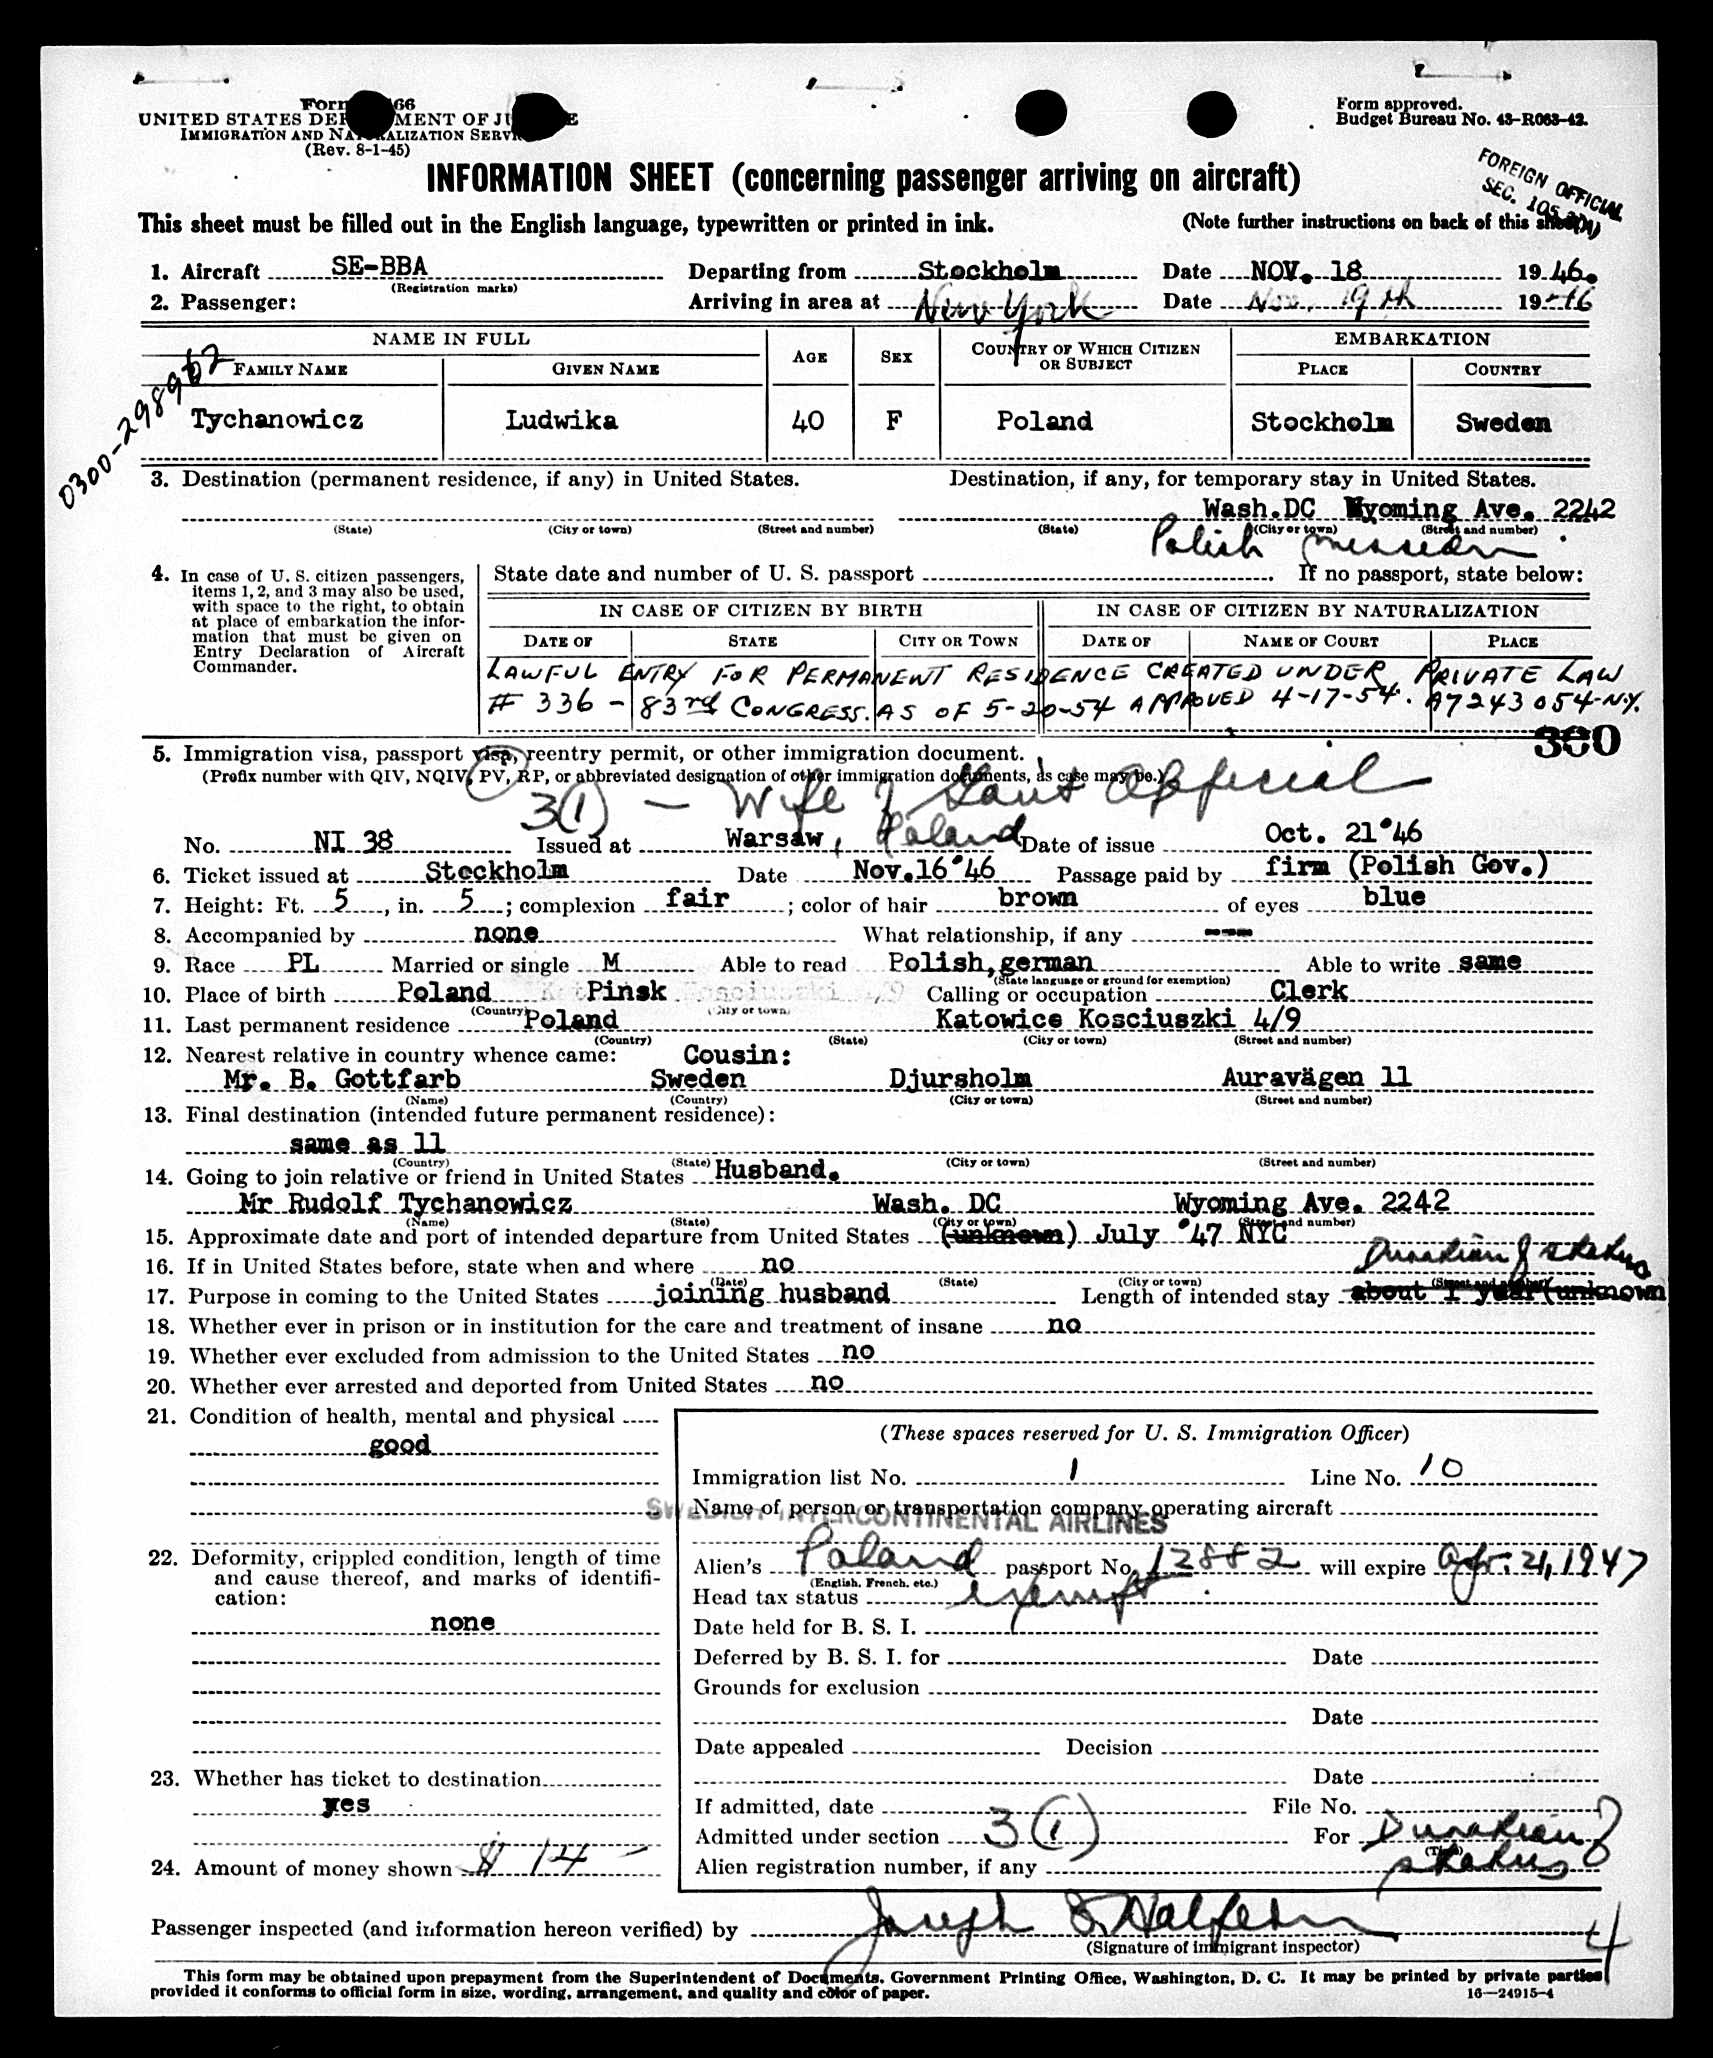 Form 66
UNITED STATES DEPARTMENT OF JUSTICE
IMMIGRATION AND NATURALIZATION SERVICE
(Rev. 8-1-45)
Form approved.
Budget Bureau No. 43-R063-42.
INFORMATION SHEET (concerning passenger arriving on aircraft)
FOREIGN OFFICIAL
SEC. 105
This sheet must be filled out in the English language, typewritten or printed in ink. (Note further instructions on back of this sheet)
1. Aircraft SE-BBA Departing from Stockholm Date NOV. 18 1946.
(Registration marks)
2. Passenger: Arriving in area at New York Date Nov. 19th 19-46
NAME IN FULL AGE SEX COUNTRY OF WHICH CITIZEN OR SUBJECT EMBARKATION
FAMILY NAME GIVEN NAME PLACE COUNTRY
0300-298962
Tychanowicz Ludwika 40 F Poland Stockholm Sweden
3. Destination (permanent residence, if any) in United States. Destination, if any, for temporary stay in United States.
Wash.DC Wyoming Ave. 2242
(State) (City or town) (Street and number) (State) (City or town) (Street and number)
Polish mission
4. In case of U. S. citizen passengers, items 1, 2, and 3 may also be used, with space to the right, to obtain at place of embarkation the information that must be given on Entry Declaration of Aircraft Commander.
State date and number of U. S. passport . If no passport, state below:
IN CASE OF CITIZEN BY BIRTH IN CASE OF CITIZEN BY NATURALIZATION
DATE OF STATE CITY OR TOWN DATE OF NAME OF COURT PLACE
LAWFUL ENTRY FOR PERMANENT RESIDENCE CREATED UNDER PRIVATE LAW
# 336 - 83rd CONGRESS. AS OF 5-20-54 APPROVED 4-17-54. A7243054-N.Y.
300
5. Immigration visa, passport visa, reentry permit, or other immigration document.
(Prefix number with QIV, NQIV, PV, RP, or abbreviated designation of other immigration documents, as case may be.)
3(1) - Wife of Gov't Official
No. NI 38 Issued at Warsaw, Poland Date of issue Oct. 21'46
6. Ticket issued at Stockholm Date Nov.16'46 Passage paid by firm (Polish Gov.)
7. Height: Ft. 5, in. 5; complexion fair; color of hair brown of eyes blue
8. Accompanied by none What relationship, if any ---
9. Race PL Married or single M Able to read Polish,german Able to write same
(State language or ground for exemption)
10. Place of birth Poland Pinsk Calling or occupation Clerk
(Country) (City or town)
11. Last permanent residence Poland Katowice Kosciuszki 4/9
(Country) (State) (City or town) (Street and number)
12. Nearest relative in country whence came: Cousin:
Mr. B. Gottfarb Sweden Djursholm Auravägen 11
(Name) (Country) (City or town) (Street and number)
13. Final destination (intended future permanent residence):
same as 11
(Country) (State) (City or town) (Street and number)
14. Going to join relative or friend in United States Husband.
Mr Rudolf Tychanowicz Wash. DC Wyoming Ave. 2242
(Name) (State) (City or town) (Street and number)
15. Approximate date and port of intended departure from United States (unknown) July '47 NYC
16. If in United States before, state when and where no
(Date) (State) (City or town) (Street and number)
Duration of status
17. Purpose in coming to the United States joining husband Length of intended stay about 1 year(unknown
18. Whether ever in prison or in institution for the care and treatment of insane no
19. Whether ever excluded from admission to the United States no
20. Whether ever arrested and deported from United States no
21. Condition of health, mental and physical
good
22. Deformity, crippled condition, length of time and cause thereof, and marks of identification:
none
23. Whether has ticket to destination
yes
24. Amount of money shown $ 14 -
(These spaces reserved for U. S. Immigration Officer)
Immigration list No. 1 Line No. 10
Name of person or transportation company operating aircraft
SWEDISH INTERCONTINENTAL AIRLINES
Alien's Poland passport No. 12882 will expire Apr. 21, 1947
(English, French, etc.)
Head tax status exempt
Date held for B. S. I.
Deferred by B. S. I. for Date
Grounds for exclusion
Date
Date appealed Decision
Date
If admitted, date File No.
Admitted under section 3(1) For Duration of status
Alien registration number, if any
Passenger inspected (and information hereon verified) by Joseph S. Halpern
(Signature of immigrant inspector)
4
This form may be obtained upon prepayment from the Superintendent of Documents, Government Printing Office, Washington, D. C. It may be printed by private parties
provided it conforms to official form in size, wording, arrangement, and quality and color of paper.
16—24915-4